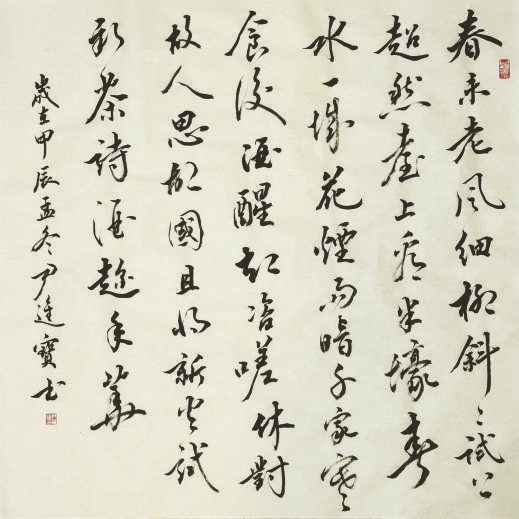 春未老風細柳斜〻試上
超然臺上看半壕春
水一城花煙雨暗千家寒
食後酒醒却咨嗟休對
故人思故國且將新火試
新茶詩酒趁年華
歲在甲辰孟冬尹 寶书